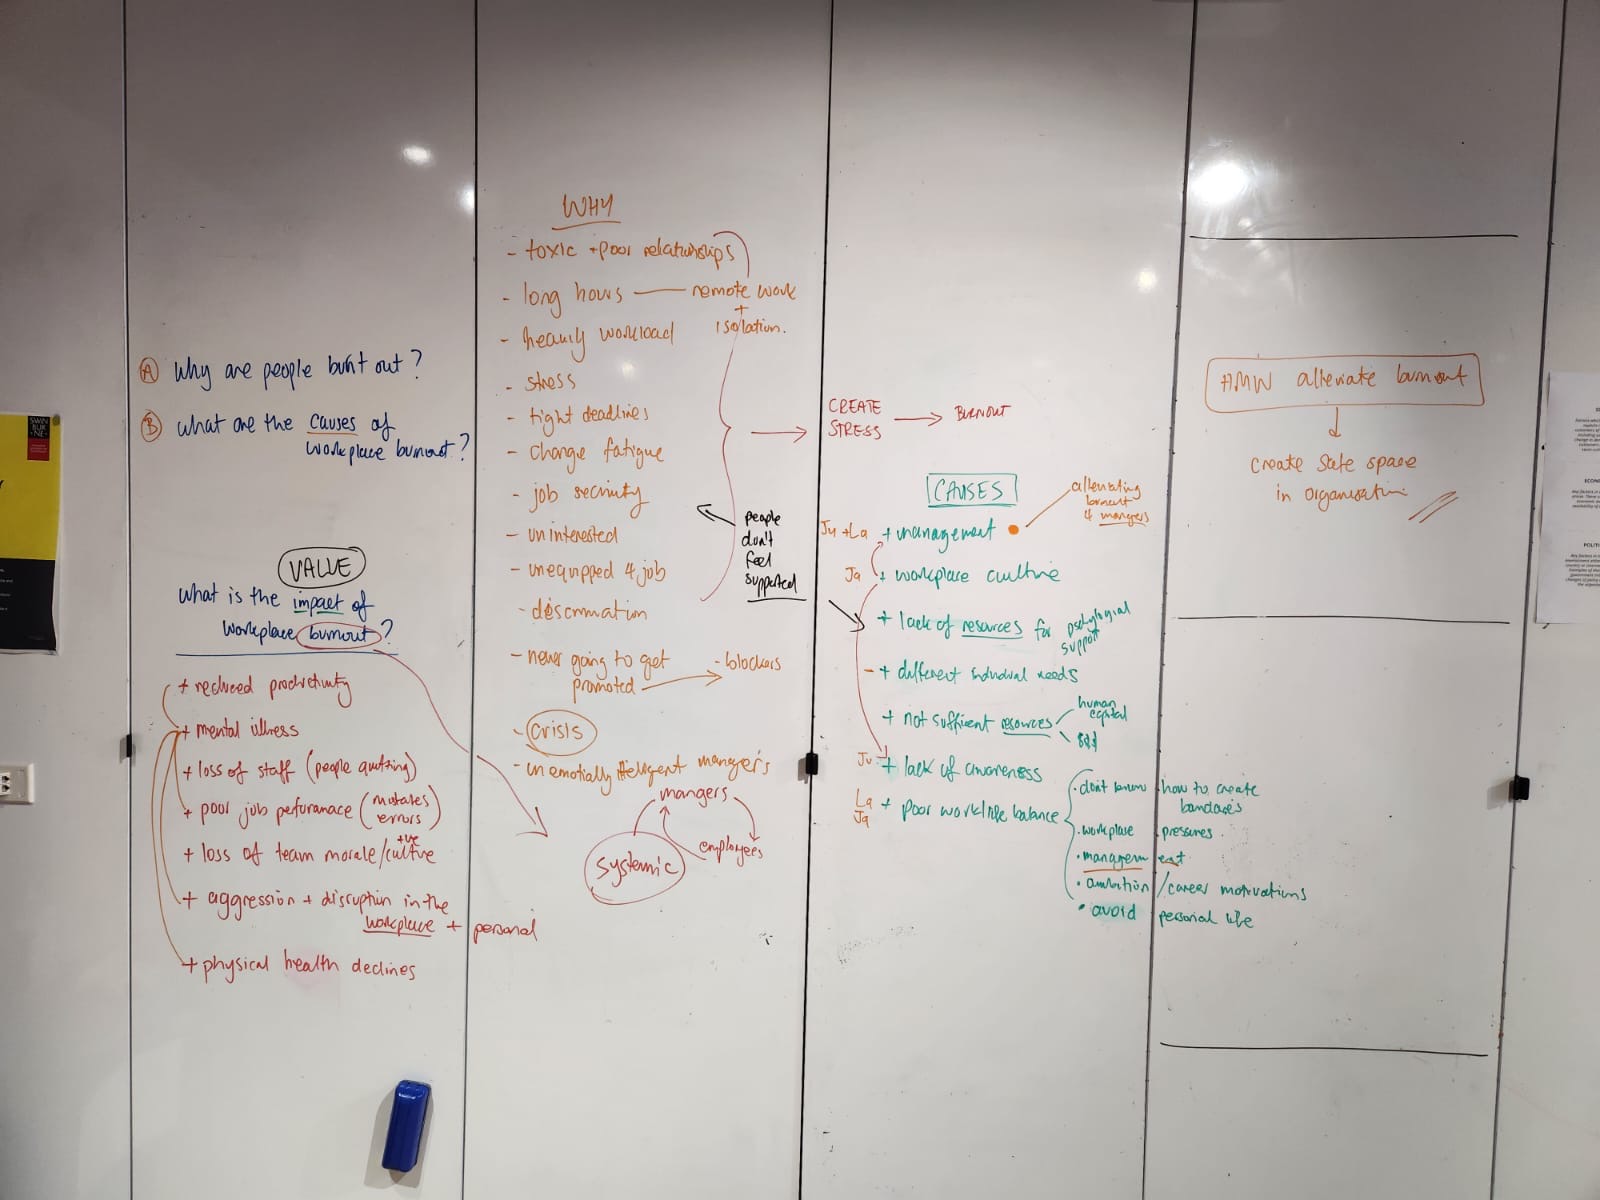 A Why are people burnt out?
B What are the causes of
workplace burnout?
VALUE
What is the impact of
workplace burnout?
+ reduced productivity
+ mental illness
+ loss of staff (people quitting)
+ poor job performance (mistakes
errors)
+ loss of team morale/culture
+ve
+ aggression + disruption in the
workplace + personal
+ physical health declines
WHY
- toxic + poor relationships
- long hours — remote work
+
isolation.
- heavily workload
- stress
- tight deadlines
- change fatigue
- job security
- uninterested
- unequipped 4 job
- never going to get
promoted
- blockers
- crisis
- managers
mangers
employees
systemic
people
don't
feel
supported
CREATE
STRESS
BURNOUT
CAUSES
Ju + La + management
alleviating
burnout
4 mangers
Ja + workplace culture
+ lack of resources for
support
- + different individual needs
+ not sufficient resources
human
capital
$$$
Ju + lack of awareness
La
Ja + poor work life balance
· don't know how to create
· workplace pressures
· management
· ambition / career motivations
· avoid personal life
HMW alleviate burnout
create safe space
in organisation
SWIN
BUR
NE